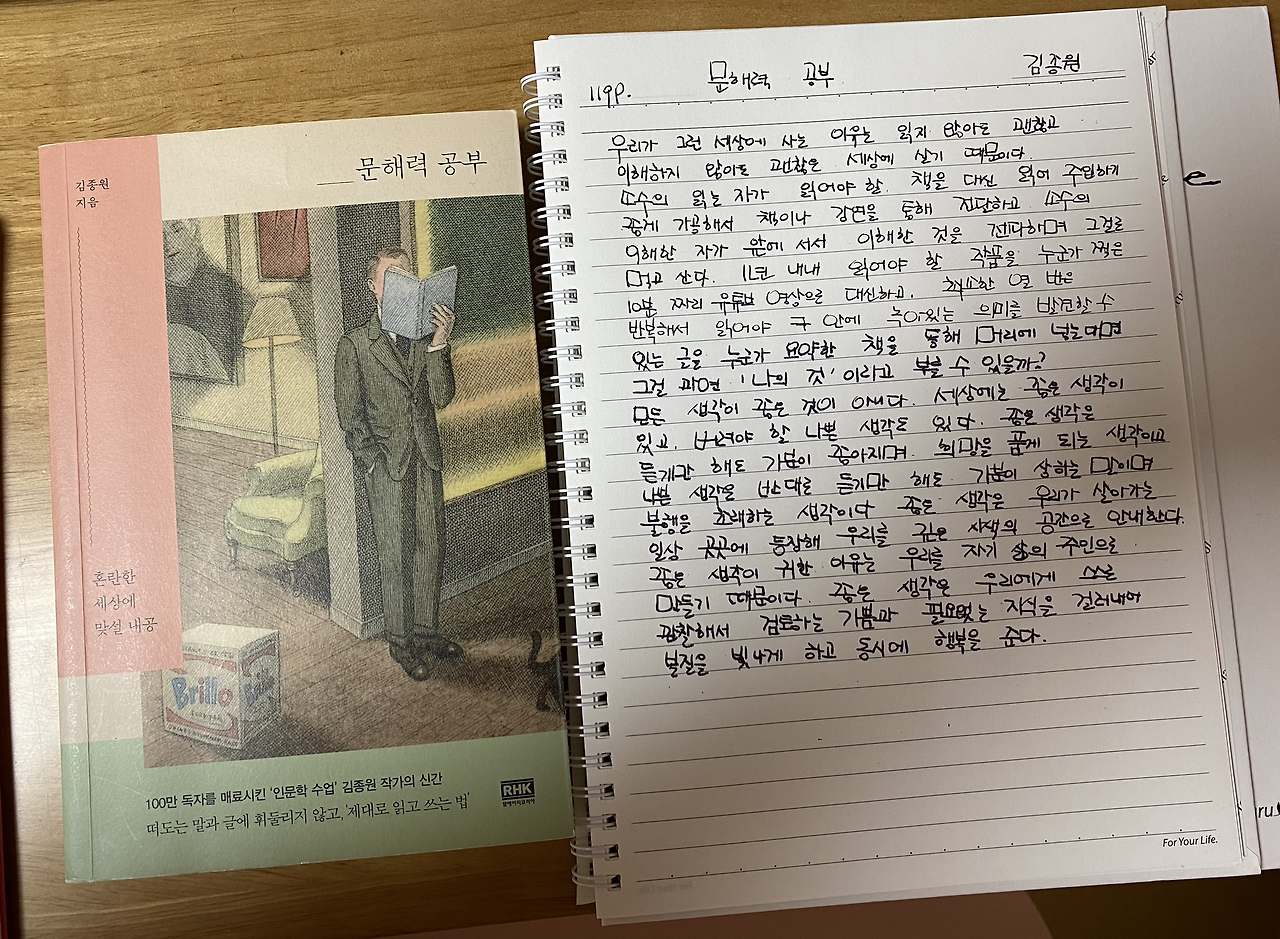 김종원
지음
문해력 공부
혼란한
세상에
맞설 내공
Brillo
100만 독자를 매료시킨 '인문학 수업' 김종원 작가의 신간
떠도는 말과 글에 휘둘리지 않고, '제대로 읽고 쓰는 법'
RHK
알에이치코리아
119p. 문해력 공부 김종원
우리가 그런 세상에 사는 이유는 읽지 않아도 괜찮고
이해하지 않아도 괜찮은 세상에 살기 때문이다.
소수의 읽는 자가 읽어야 할 책을 대신 읽어 주입하기
좋게 가공해서 책이나 강연을 통해 전달하고 소수의
이해한 자가 앞에 서서 이해한 것을 전파하며 그걸로
먹고 산다. 1년 내내 읽어야 할 작품을 누군가 찍은
10분 짜리 유튜브 영상으로 대신하고, 최소한 열 번은
반복해서 읽어야 그 안에 녹아있는 의미를 발견할 수
있는 글을 누군가 요약한 책을 통해 머리에 넣는다면
그걸 과연 '나의 것'이라고 부를 수 있을까?
모든 생각이 좋은 것이 아니다. 세상에는 좋은 생각이
있고, 버려야 할 나쁜 생각도 있다. 좋은 생각은
듣기만 해도 기분이 좋아지며, 희망을 품게 되는 생각이고
나쁜 생각은 반대로 듣기만 해도 기분이 상하는 말이며
불행을 초래하는 생각이다 좋은 생각은 우리가 살아가는
일상 곳곳에 등장해 우리를 깊은 사색의 공간으로 안내한다.
좋은 생각이 귀한 이유는 우리를 자기 삶의 주인으로
만들기 때문이다. 좋은 생각은 우리에게 스스로
관찰해서 검토하는 기쁨과 필요없는 지식을 걸러내어
본질을 빛나게 하고 동시에 행복을 준다.
For Your Life.